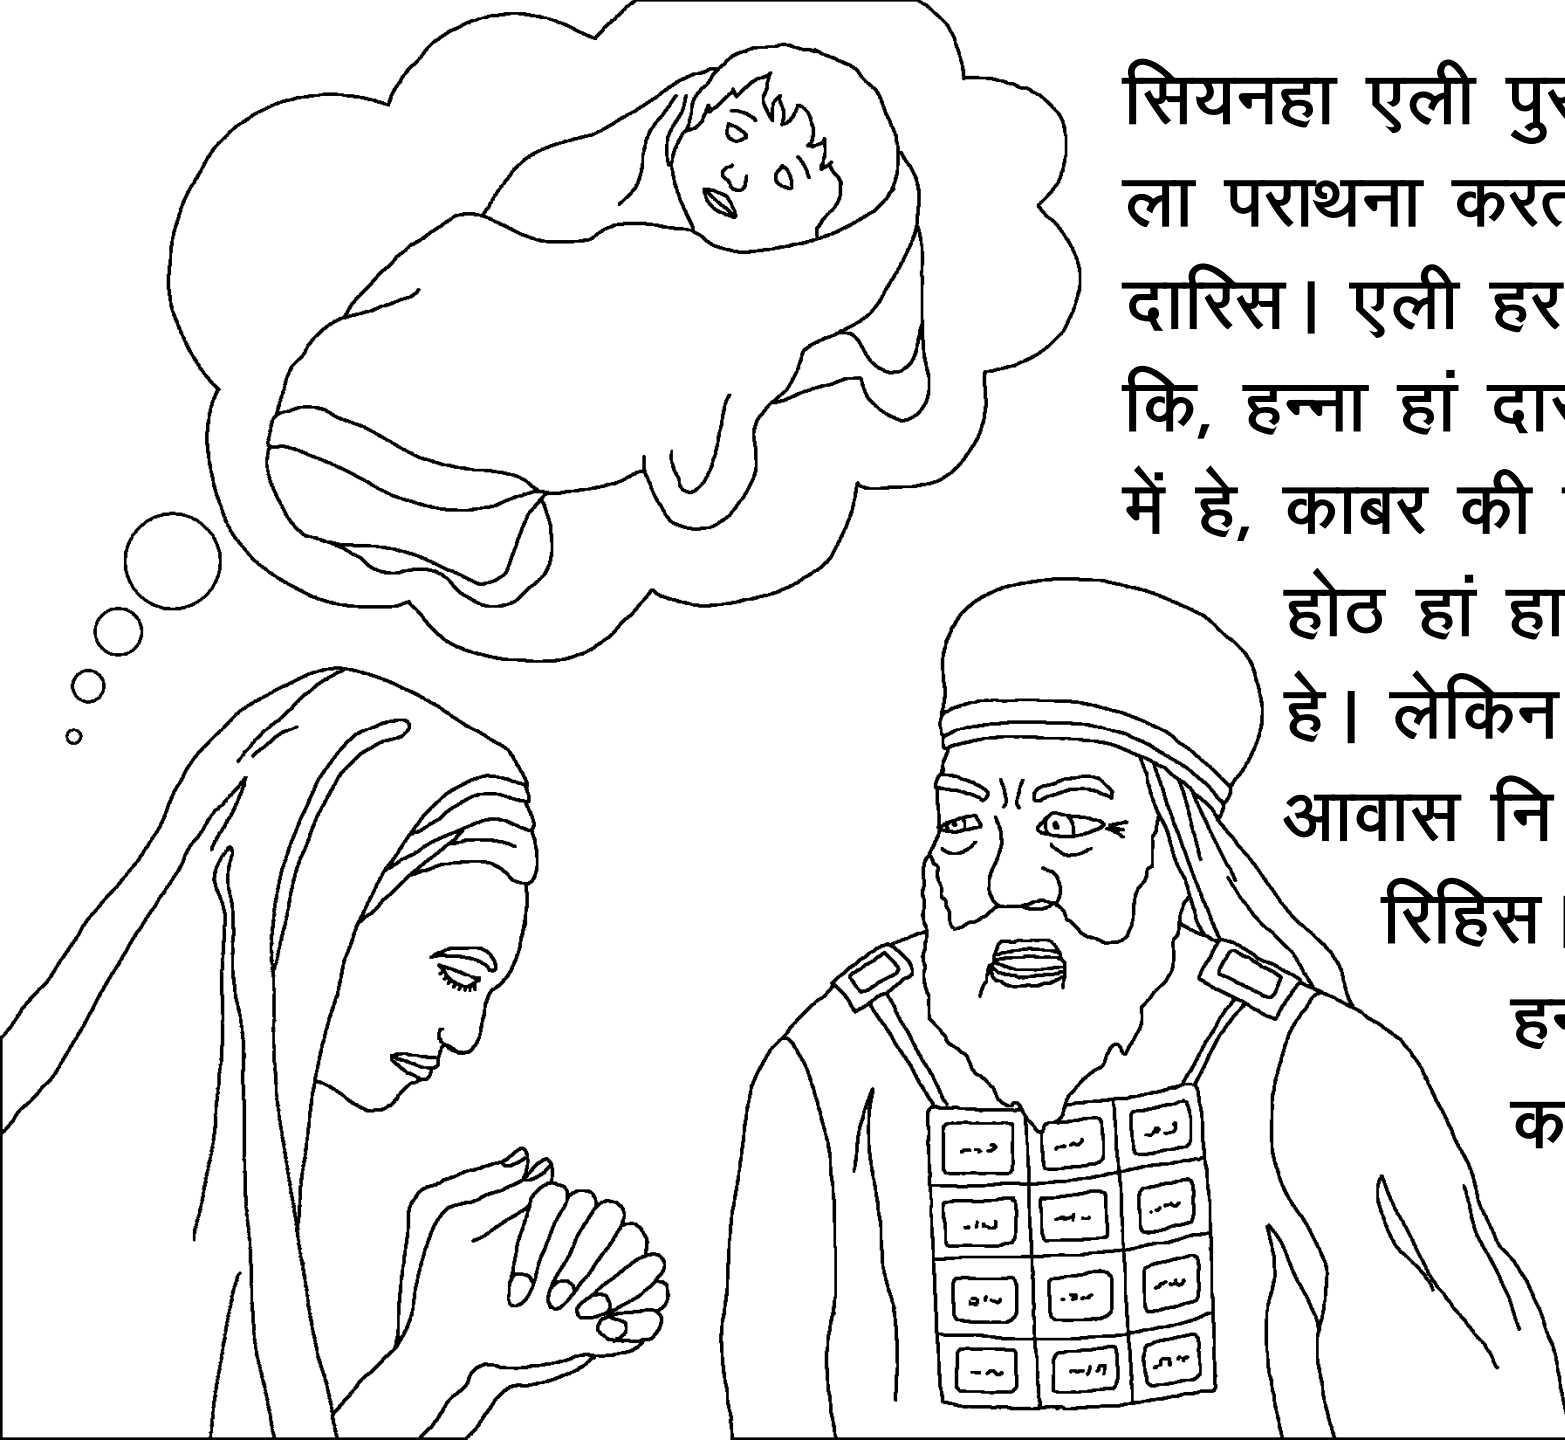 सियनहा एली
ला पराथना
दारिस। एली हर
कि, हन्ना हां
में हे, काबर की
होठ हां
हे। लेकिन
आवास नि
रिहिस।